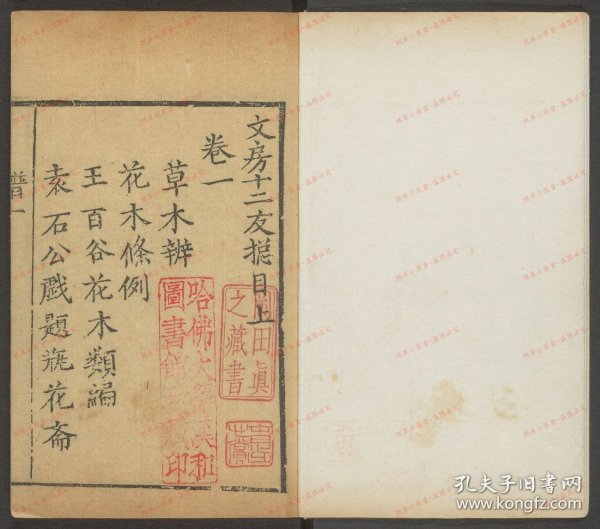 文房十二友摠目上
卷一
草木辨
花木條例
王百谷花木類編
袁石公戲題瓶花斋
譜一
田眞
之藏書
哈佛大學漢和
圖書館珍藏印
孔夫子旧书网
www.kongfz.com